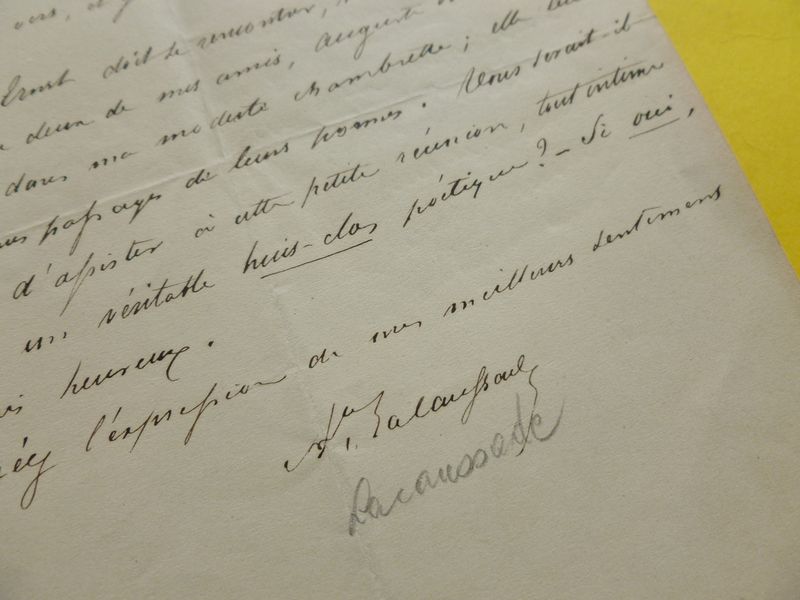 vers, et
Ernst doit se rencontrer,
deux de mes amis, Auguste
dans ma modeste chambrette; elle
passages de leurs poemes. Vous serait-il
d'assister à cette petite réunion, tout intime
un véritable huis-clos poétique? - Si oui,
heureux.
l'expression de mes meilleurs sentimens
Ate Lacaussade
Lacaussade